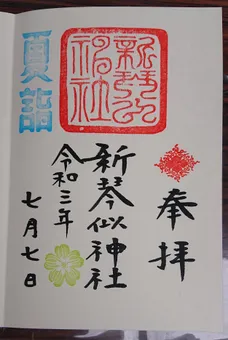 奉拝
新琴似神社
令和三年
七月七日
夏詣
新琴似神社